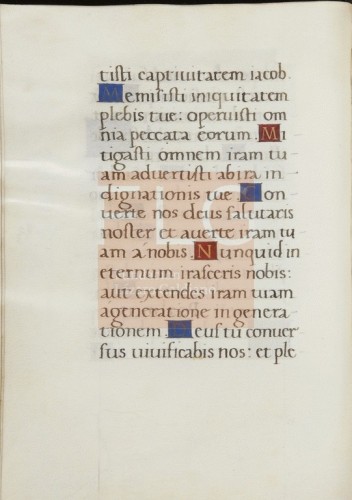 tisti captivitatem iacob.
Remisisti iniquitatem
plebis tue: operuisti om
nia peccata eorum. Mi
tigasti omnem iram tu
am advertisti ab ira in
dignationis tue. Con
verte nos deus salutaris
noster et averte iram tu
am á nobis. Nunquid in
eternum irasceris nobis:
aut extendes iram tuam
a generatione in genera
tionem. Deus tu conver
sus vivificabis nos: et ple